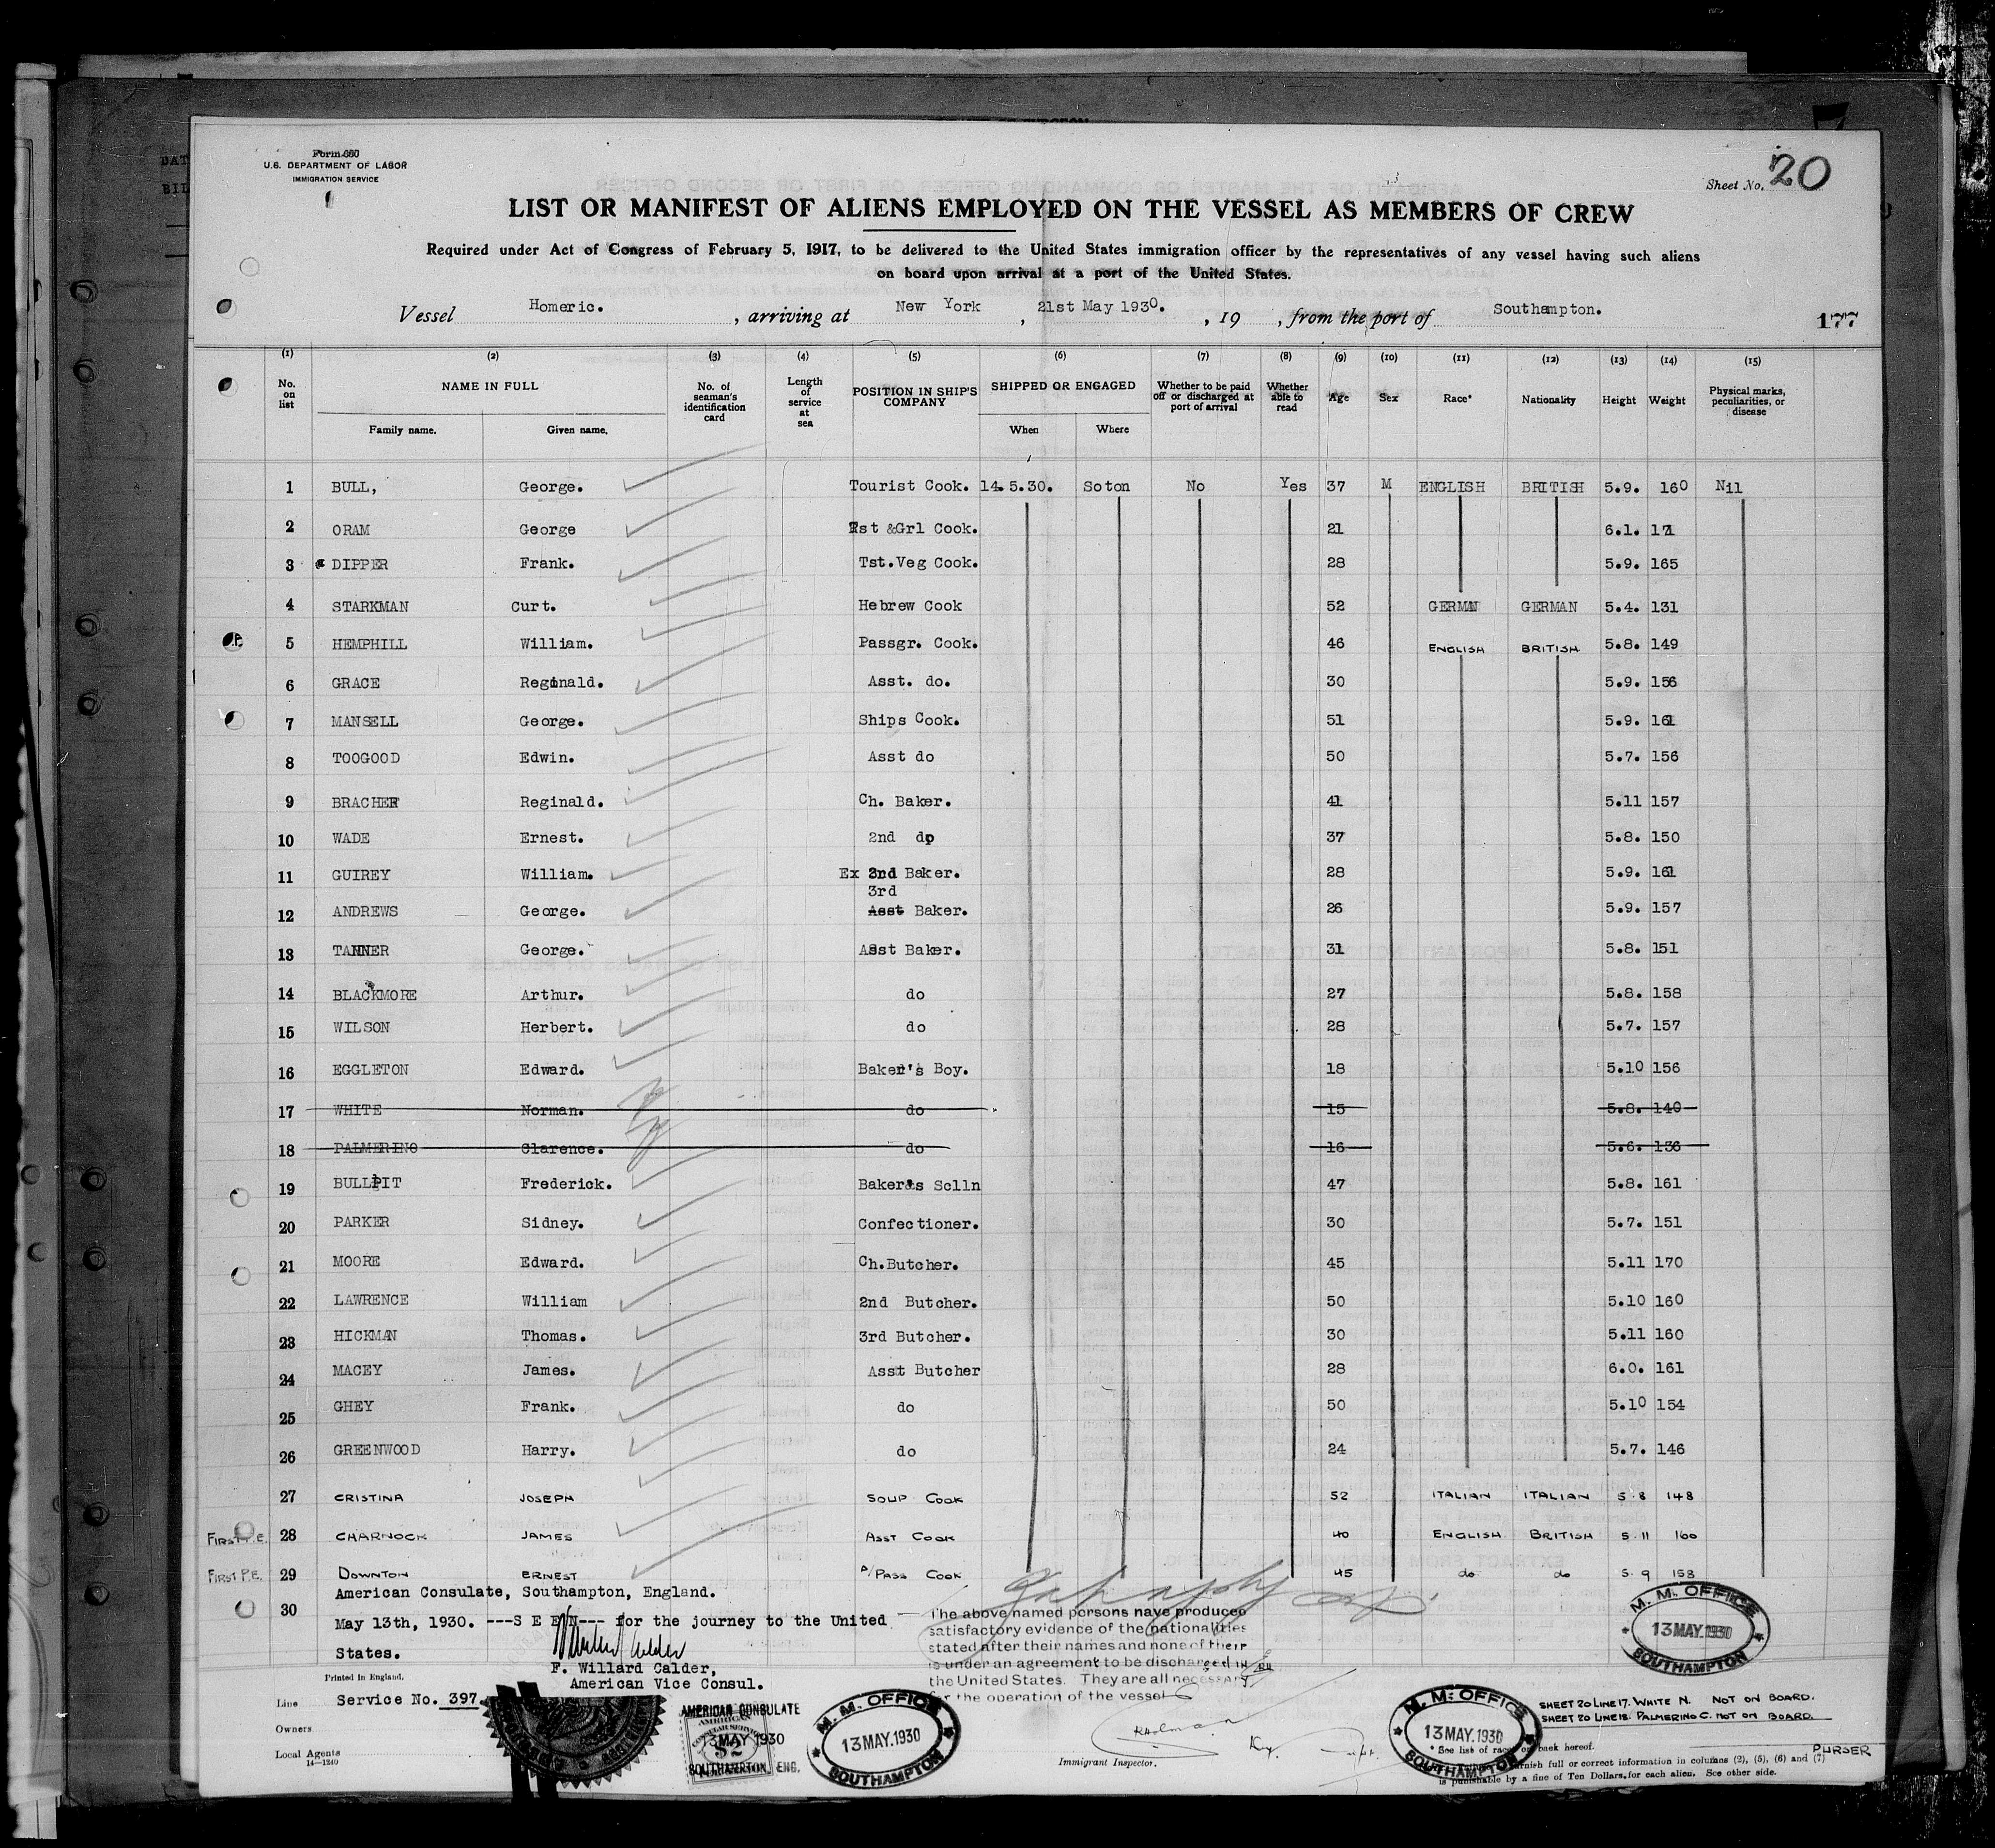 Form 680
U.S. DEPARTMENT OF LABOR
IMMIGRATION SERVICE
Sheet No. 20
LIST OR MANIFEST OF ALIENS EMPLOYED ON THE VESSEL AS MEMBERS OF CREW
Required under Act of Congress of February 5, 1917, to be delivered to the United States immigration officer by the representatives of any vessel having such aliens
on board upon arrival at a port of the United States.
Vessel Homeric. , arriving at New York , 21st May 1930. , 19 , from the port of Southampton.
177
(1) (2) (3) (4) (5) (6) (7) (8) (9) (10) (11) (12) (13) (14) (15)
No. on list NAME IN FULL Family name. Given name. No. of seaman's identification card Length of service at sea POSITION IN SHIP'S COMPANY SHIPPED OR ENGAGED When Where Whether to be paid off or discharged at port of arrival Whether able to read Age Sex Race* Nationality Height Weight Physical marks, peculiarities, or disease
1 BULL, George. Tourist Cook. 14.5.30. Soton No Yes 37 M ENGLISH BRITISH 5.9. 160 Nil
2 ORAM George Tst &Grl Cook. 21 6.1. 171
3 DIPPER Frank. Tst.Veg Cook. 28 5.9. 165
4 STARKMAN Curt. Hebrew Cook 52 GERMAN GERMAN 5.4. 131
5 HEMPHILL William. Passgr. Cook. 46 ENGLISH BRITISH 5.8. 149
6 GRACE Reginald. Asst. do. 30 5.9. 156
7 MANSELL George. Ships Cook. 51 5.9. 161
8 TOOGOOD Edwin. Asst do 50 5.7. 156
9 BRACHER Reginald. Ch. Baker. 41 5.11 157
10 WADE Ernest. 2nd do 37 5.8. 150
11 GUIREY William. Ex 2nd Baker. 28 5.9. 161
3rd
12 ANDREWS George. Asst Baker. 26 5.9. 157
13 TANNER George. Asst Baker. 31 5.8. 151
14 BLACKMORE Arthur. do 27 5.8. 158
15 WILSON Herbert. do 28 5.7. 157
16 EGGLETON Edward. Baker's Boy. 18 5.10 156
17 WHITE Norman. do 15 5.8. 140
18 PALMERINO Clarence. do 16 5.6. 136
19 BULLPIT Frederick. Baker's Sclln 47 5.8. 161
20 PARKER Sidney. Confectioner. 30 5.7. 151
21 MOORE Edward. Ch.Butcher. 45 5.11 170
22 LAWRENCE William 2nd Butcher. 50 5.10 160
23 HICKMAN Thomas. 3rd Butcher. 30 5.11 160
24 MACEY James. Asst Butcher 28 6.0. 161
25 GHEY Frank. do 50 5.10 154
26 GREENWOOD Harry. do 24 5.7. 146
27 CRISTINA JOSEPH SOUP COOK 52 ITALIAN ITALIAN 5.8 148
FIRST P.E. 28 CHARNOCK JAMES ASST COOK 40 ENGLISH BRITISH 5.11 160
FIRST P.E. 29 DOWNTON ERNEST A/PASS COOK 45 do do 5.9 158
American Consulate, Southampton, England.
30
May 13th, 1930. ---S E E N--- for the journey to the United
States.
F. Willard Calder,
American Vice Consul.
The above named persons have produced
satisfactory evidence of the nationalities
stated after their names and none of their
is under an agreement to be discharged in
the United States. They are all necessary
for the operation of the vessel
M. M. OFFICE
13 MAY.1930
SOUTHAMPTON
Printed in England.
Line Service No. 397
Owners
Local Agents
14—1240
AMERICAN CONSULATE
13 MAY 1930
SOUTHAMPTON, ENG.
AMERICAN
CONSULAR SERVICE
$2
M. M. OFFICE
13 MAY.1930
SOUTHAMPTON
Immigrant Inspector.
M. M. OFFICE
13 MAY.1930
SOUTHAMPTON
SHEET 20 LINE 17. WHITE N. NOT ON BOARD.
SHEET 20 LINE 18. PALMERINO C. NOT ON BOARD.
PURSER
* See list of races on back hereof.
furnish full or correct information in columns (2), (5), (6) and (7)
is punishable by a fine of Ten Dollars, for each alien. See other side.